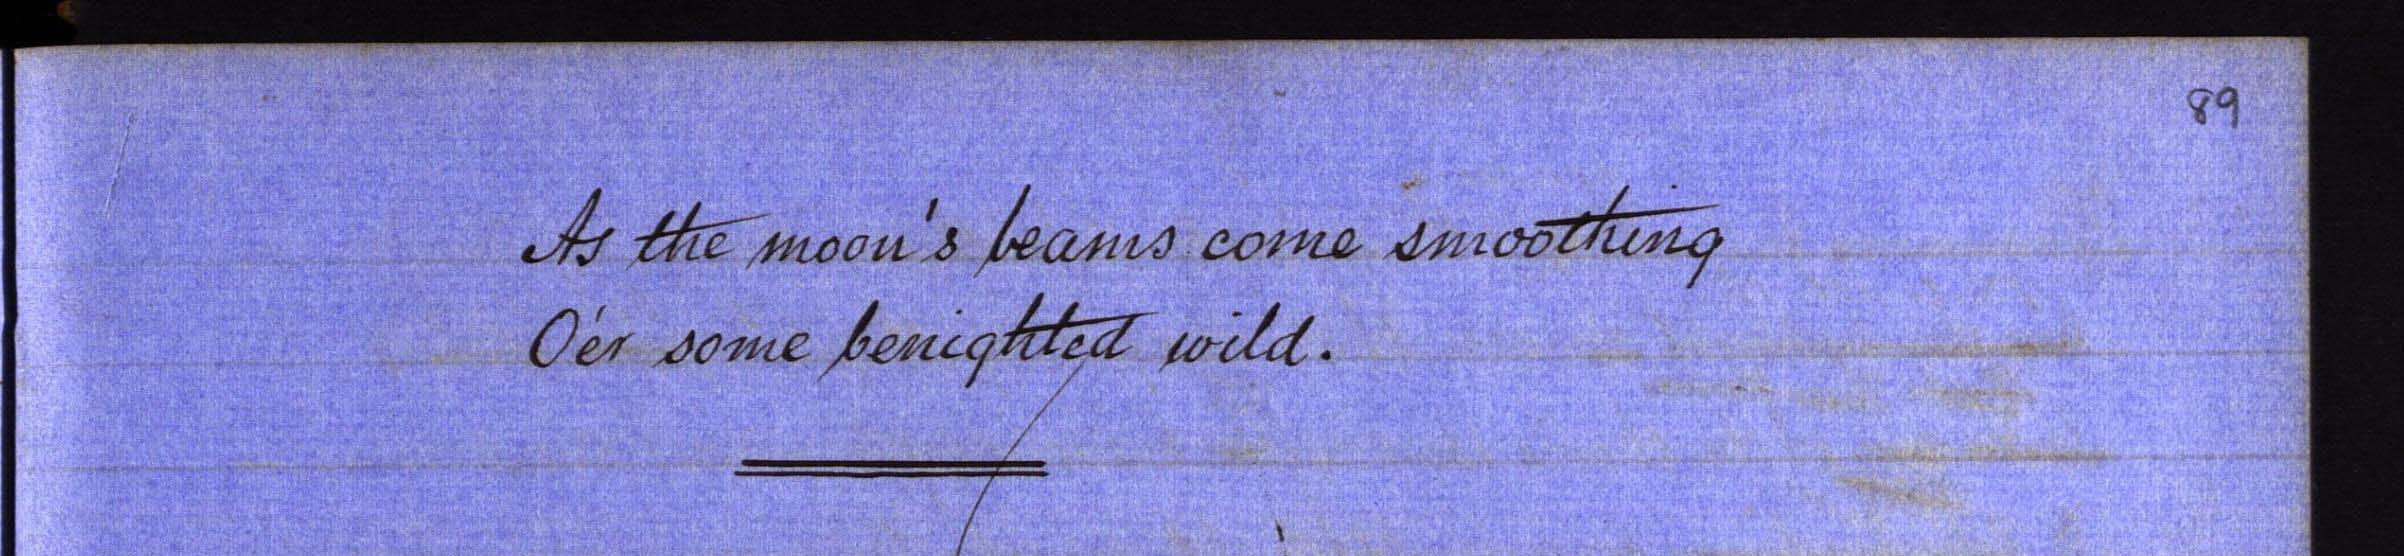 89
As the moon's beams come smoothing
O'er some benighted wild.